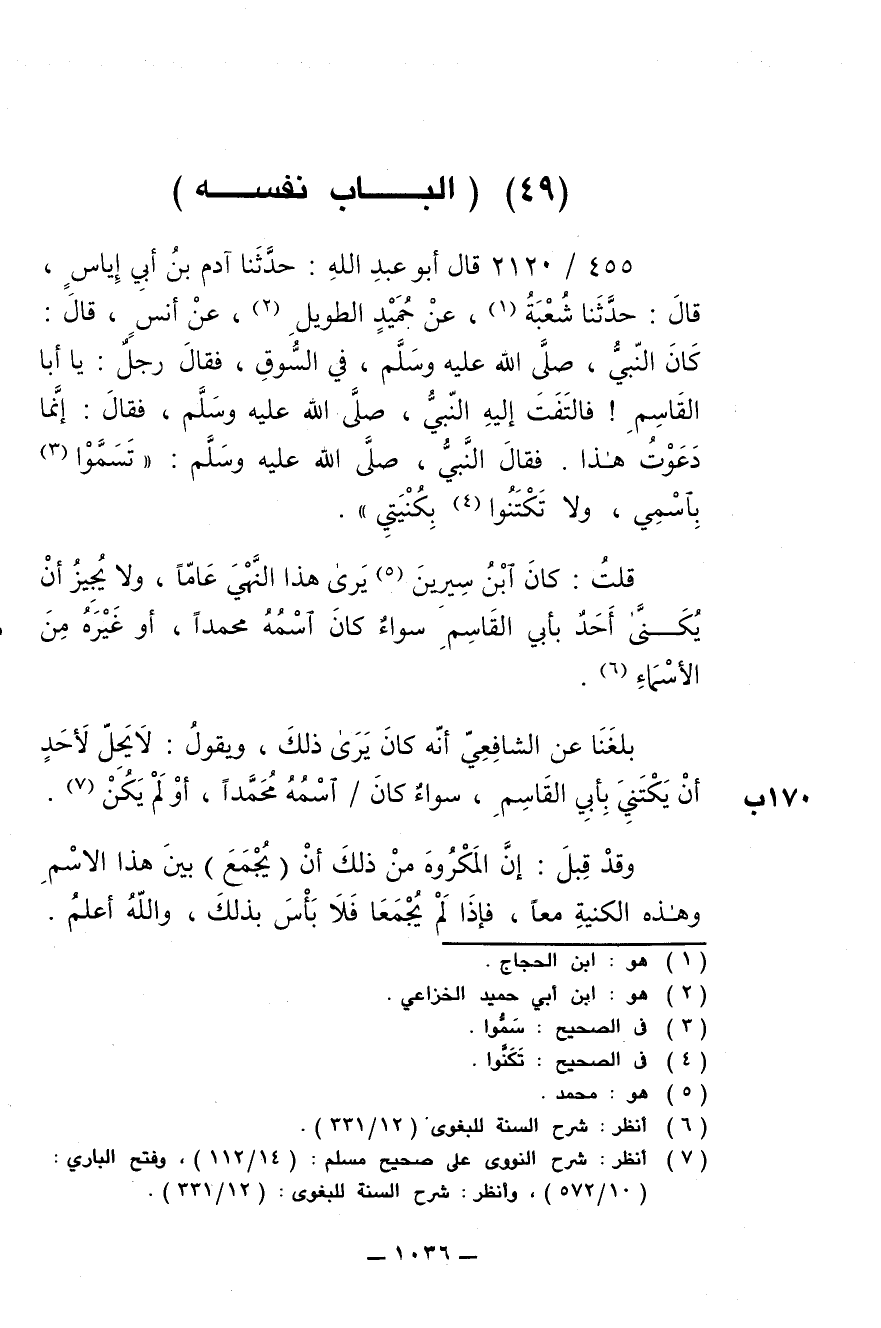 (٤٩) ( البـــــاب نفســـــه )
٤٥٥ / ٢١٢٠ قال أبو عبدِ اللهِ : حدَّثَنا آدم بنُ أبي إِياسٍ ،
قالَ : حدَّثَنا شُعْبَةُ (١) ، عنْ حُمَيْدٍ الطويلِ (٢) ، عنْ أنسٍ ، قالَ :
كَانَ النّبيُّ ، صلَّى الله عليه وسَلَّم ، في السُّوقِ ، فقالَ رجلٌ : يا أبا
القَاسِمِ ! فالتَفَتَ إليهِ النّبيُّ ، صلَّى الله عليه وسَلَّم ، فقالَ : إنَّما
دَعَوْتُ هـٰذا . فقالَ النَّبيُّ ، صلَّى الله عليه وسَلَّم : « تَسَمَّوْا (٣)
بِٱسْمِي ، ولا تَكْتَنُوا (٤) بِكُنْيَتِي » .
قلتُ : كانَ ٱبْنُ سِيرينَ (٥) يَرىٰ هذا النَّهْيَ عَامّاً ، ولا يُجِيزُ أنْ
يُكَـــنىَّٰ أَحَدٌ بأبي القَاسِمِ سواءٌ كانَ ٱسْمُهُ محمداً ، أو غَيْرَهُ مِنَ
الأسْمَاءِ (٦) .
بلغَنَا عن الشافِعِيّ أنّه كانَ يَرَىٰ ذلكَ ، ويقولُ : لَايَحِلّ لَأحَدٍ
أنْ يَكْتَنِيَ بِأبي القَاسِمِ ، سواءٌ كانَ / ٱسْمُهُ مُحَمَّداً ، أوْ لَمْ يَكُنْ (٧) .
١٧٠ب
وقدْ قِيلَ : إنَّ المَكْرُوهَ منْ ذلكَ أنْ ( يُجْمَعَ ) بينَ هذا الاسْمِ
وهـٰذه الكنيةِ معاً ، فإذَا لَمْ يُجْمَعَا فَلَا بَأْسَ بذلكَ ، واللّهُ أعلمُ .
( ١ ) هو : ابن الحجاج .
( ٢ ) هو : ابن أبي حميد الخزاعي .
( ٣ ) فى الصحيح : سَمُّوا .
( ٤ ) فى الصحيح : تَكَنَّوا .
( ٥ ) هو : محمد .
( ٦ ) أنظر : شرح السنة للبغوى ( ٣٣١/١٢ ) .
( ٧ ) أنظر : شرح النووى على صحيح مسلم : ( ١١٢/١٤ ) ، وفتح الباري :
( ٥٧٢/١٠ ) ، وأنظر : شرح السنة للبغوى : ( ٣٣١/١٢ ) .
— ١٠٣٦ —